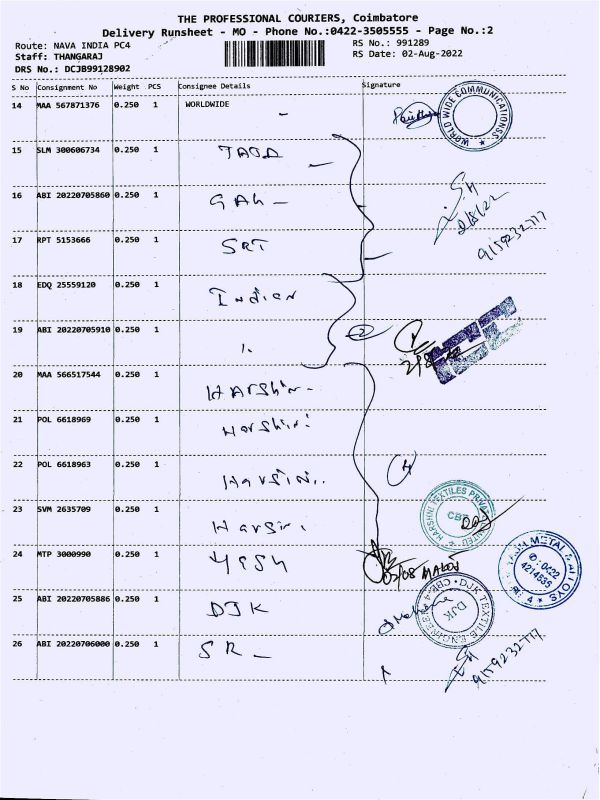 THE PROFESSIONAL COURIERS, Coimbatore
Delivery Runsheet - MO - Phone No.:0422-3505555 - Page No.:2
Route: NAVA INDIA PC4
RS No.: 991289
Staff: THANGARAJ
RS Date: 02-Aug-2022
DRS No.: DCJB99128902
S No Consignment No Weight PCS Consignee Details Signature
14 MAA 567871376 0.250 1 WORLDWIDE
WORLD WIDE COMMUNICATIONSS
15 SLM 300606734 0.250 1
16 ABI 20220705860 0.250 1
2/8/22
9159232777
17 RPT 5153666 0.250 1 SRT
18 EDQ 25559120 0.250 1 Indian
19 ABI 20220705910 0.250 1
2
20 MAA 566517544 0.250 1 HARShin
21 POL 6618969 0.250 1 Harshini
22 POL 6618963 0.250 1 Harsini
4
23 SVM 2635709 0.250 1 Harsini
HARSHNI TEXTILES PRIVATE LIMITED
24 MTP 3000990 0.250 1
METAL ALLOYS
0422
4214535
25 ABI 20220705886 0.250 1 DJK
DJK TEXTILE ENGINEERS
DJK
CBE-4
26 ABI 20220706000 0.250 1 SR
9159232777